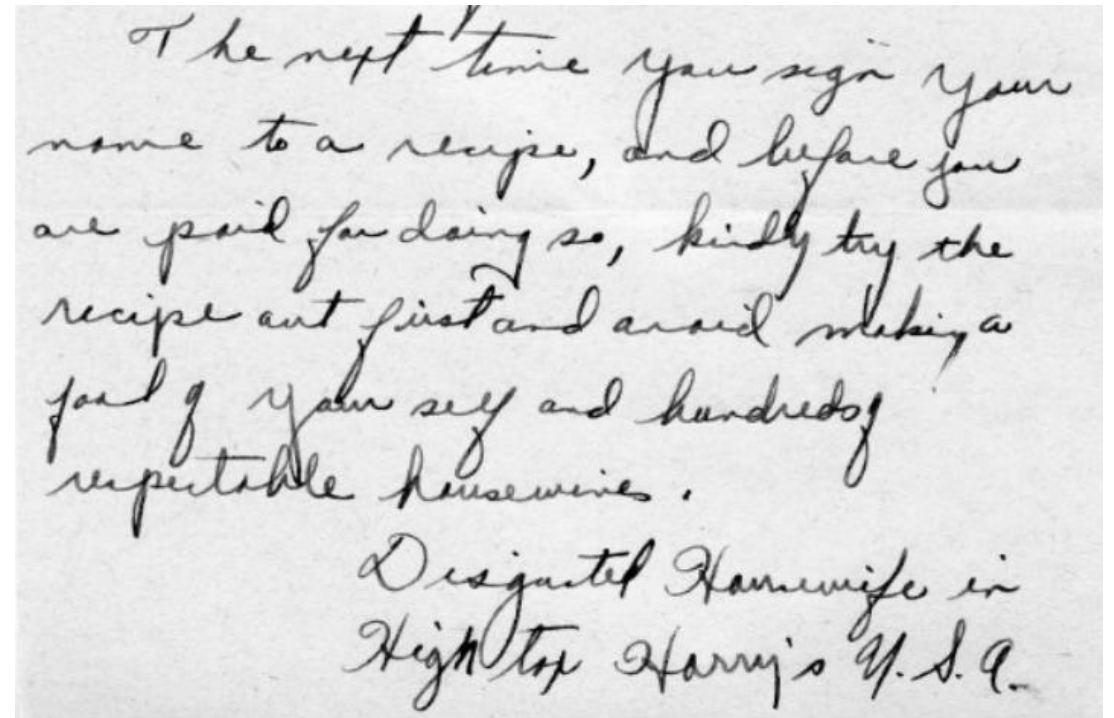 The next time you sign your
name to a recipe, and before you
are paid for doing so, kindly try the
recipe out first and avoid making a
fool of your self and hundreds of
respectable housewives.
Disgusted Housewife in
High tax Harry's U.S.A.